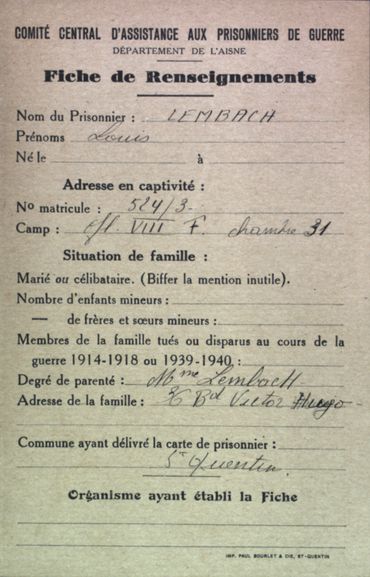 COMITÉ CENTRAL D'ASSISTANCE AUX PRISONNIERS DE GUERRE
DÉPARTEMENT DE L'AISNE
Fiche de Renseignements
Nom du Prisonnier : LEMBACH
Prénoms Louis
Né le à
Adresse en captivité :
No matricule : 524/3
Camp : Off. VIII F. chambre 31
Situation de famille :
Marié ou célibataire. (Biffer la mention inutile).
Nombre d'enfants mineurs :
— de frères et sœurs mineurs :
Membres de la famille tués ou disparus au cours de la
guerre 1914-1918 ou 1939-1940 :
Degré de parenté : Mme Lembach
Adresse de la famille : Bd Victor Hugo
Commune ayant délivré la carte de prisonnier :
St Quentin.
Organisme ayant établi la Fiche
IMP. PAUL BOURLET & CIE, ST-QUENTIN